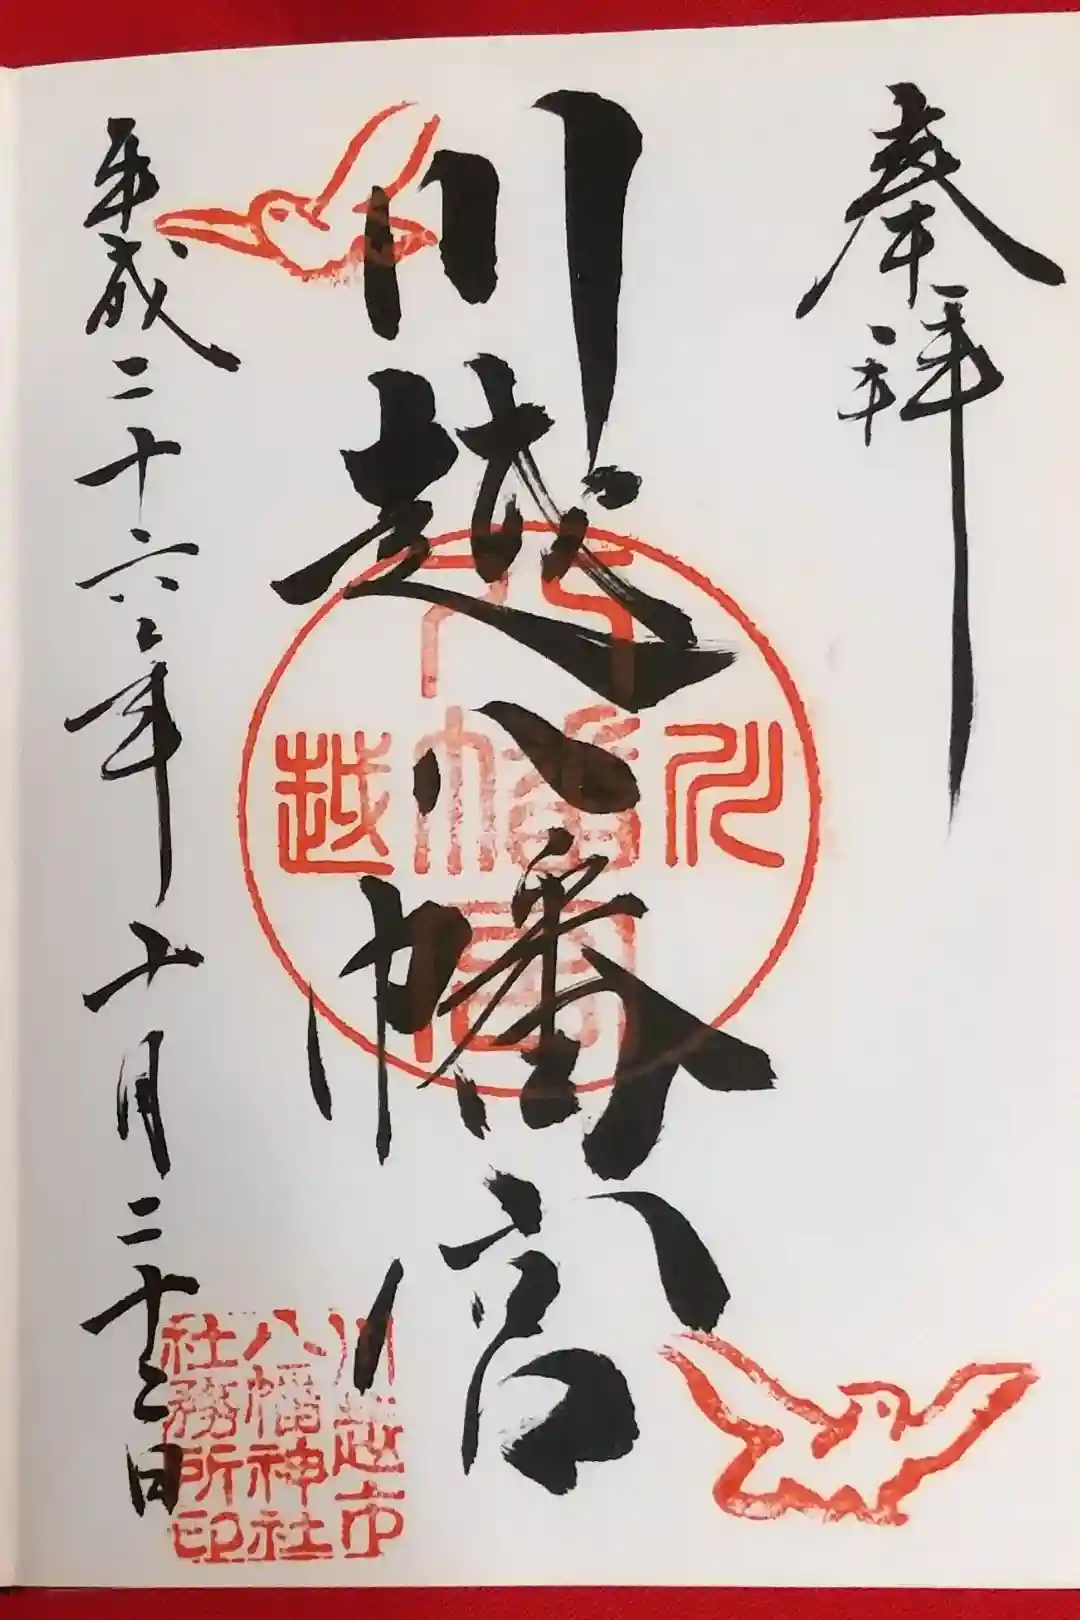 奉拝
川越八幡宮
平成二十六年十月二十二日
川
越
八
幡
宮
川越市
八幡神社
社務所印